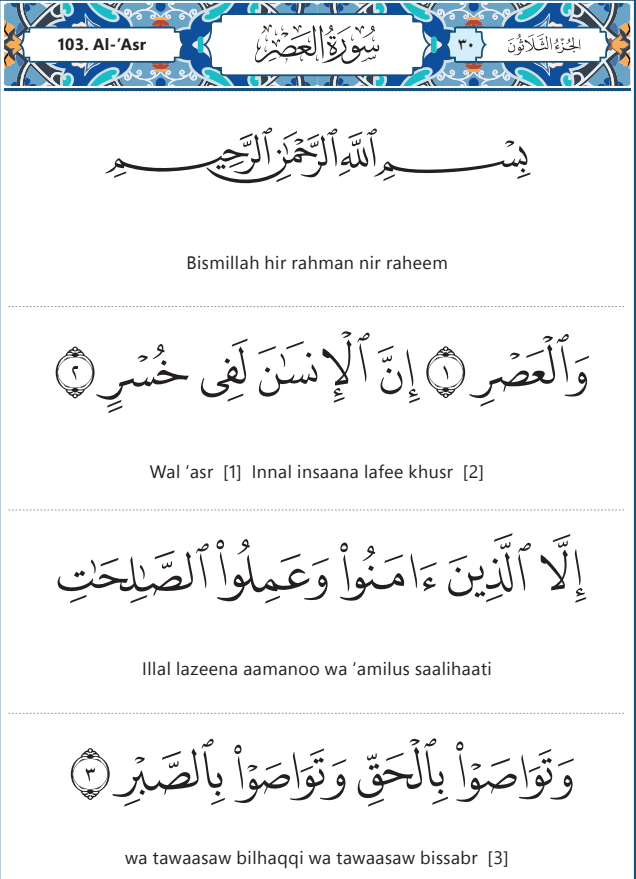 103. Al-’Asr سُورَةُ العَصْرِ ٣٠ الجُزْءُ الثَّلَاثُونَ
بِسْمِ ٱللَّهِ ٱلرَّحْمَٰنِ ٱلرَّحِيمِ
Bismillah hir rahman nir raheem
وَٱلْعَصْرِ ١ إِنَّ ٱلْإِنسَٰنَ لَفِى خُسْرٍ ٢
Wal ‘asr [1] Innal insaana lafee khusr [2]
إِلَّا ٱلَّذِينَ ءَامَنُوا۟ وَعَمِلُوا۟ ٱلصَّٰلِحَٰتِ
Illal lazeena aamanoo wa ‘amilus saalihaati
وَتَوَاصَوْا۟ بِٱلْحَقِّ وَتَوَاصَوْا۟ بِٱلصَّبْرِ ٣
wa tawaasaw bilhaqqi wa tawaasaw bissabr [3]